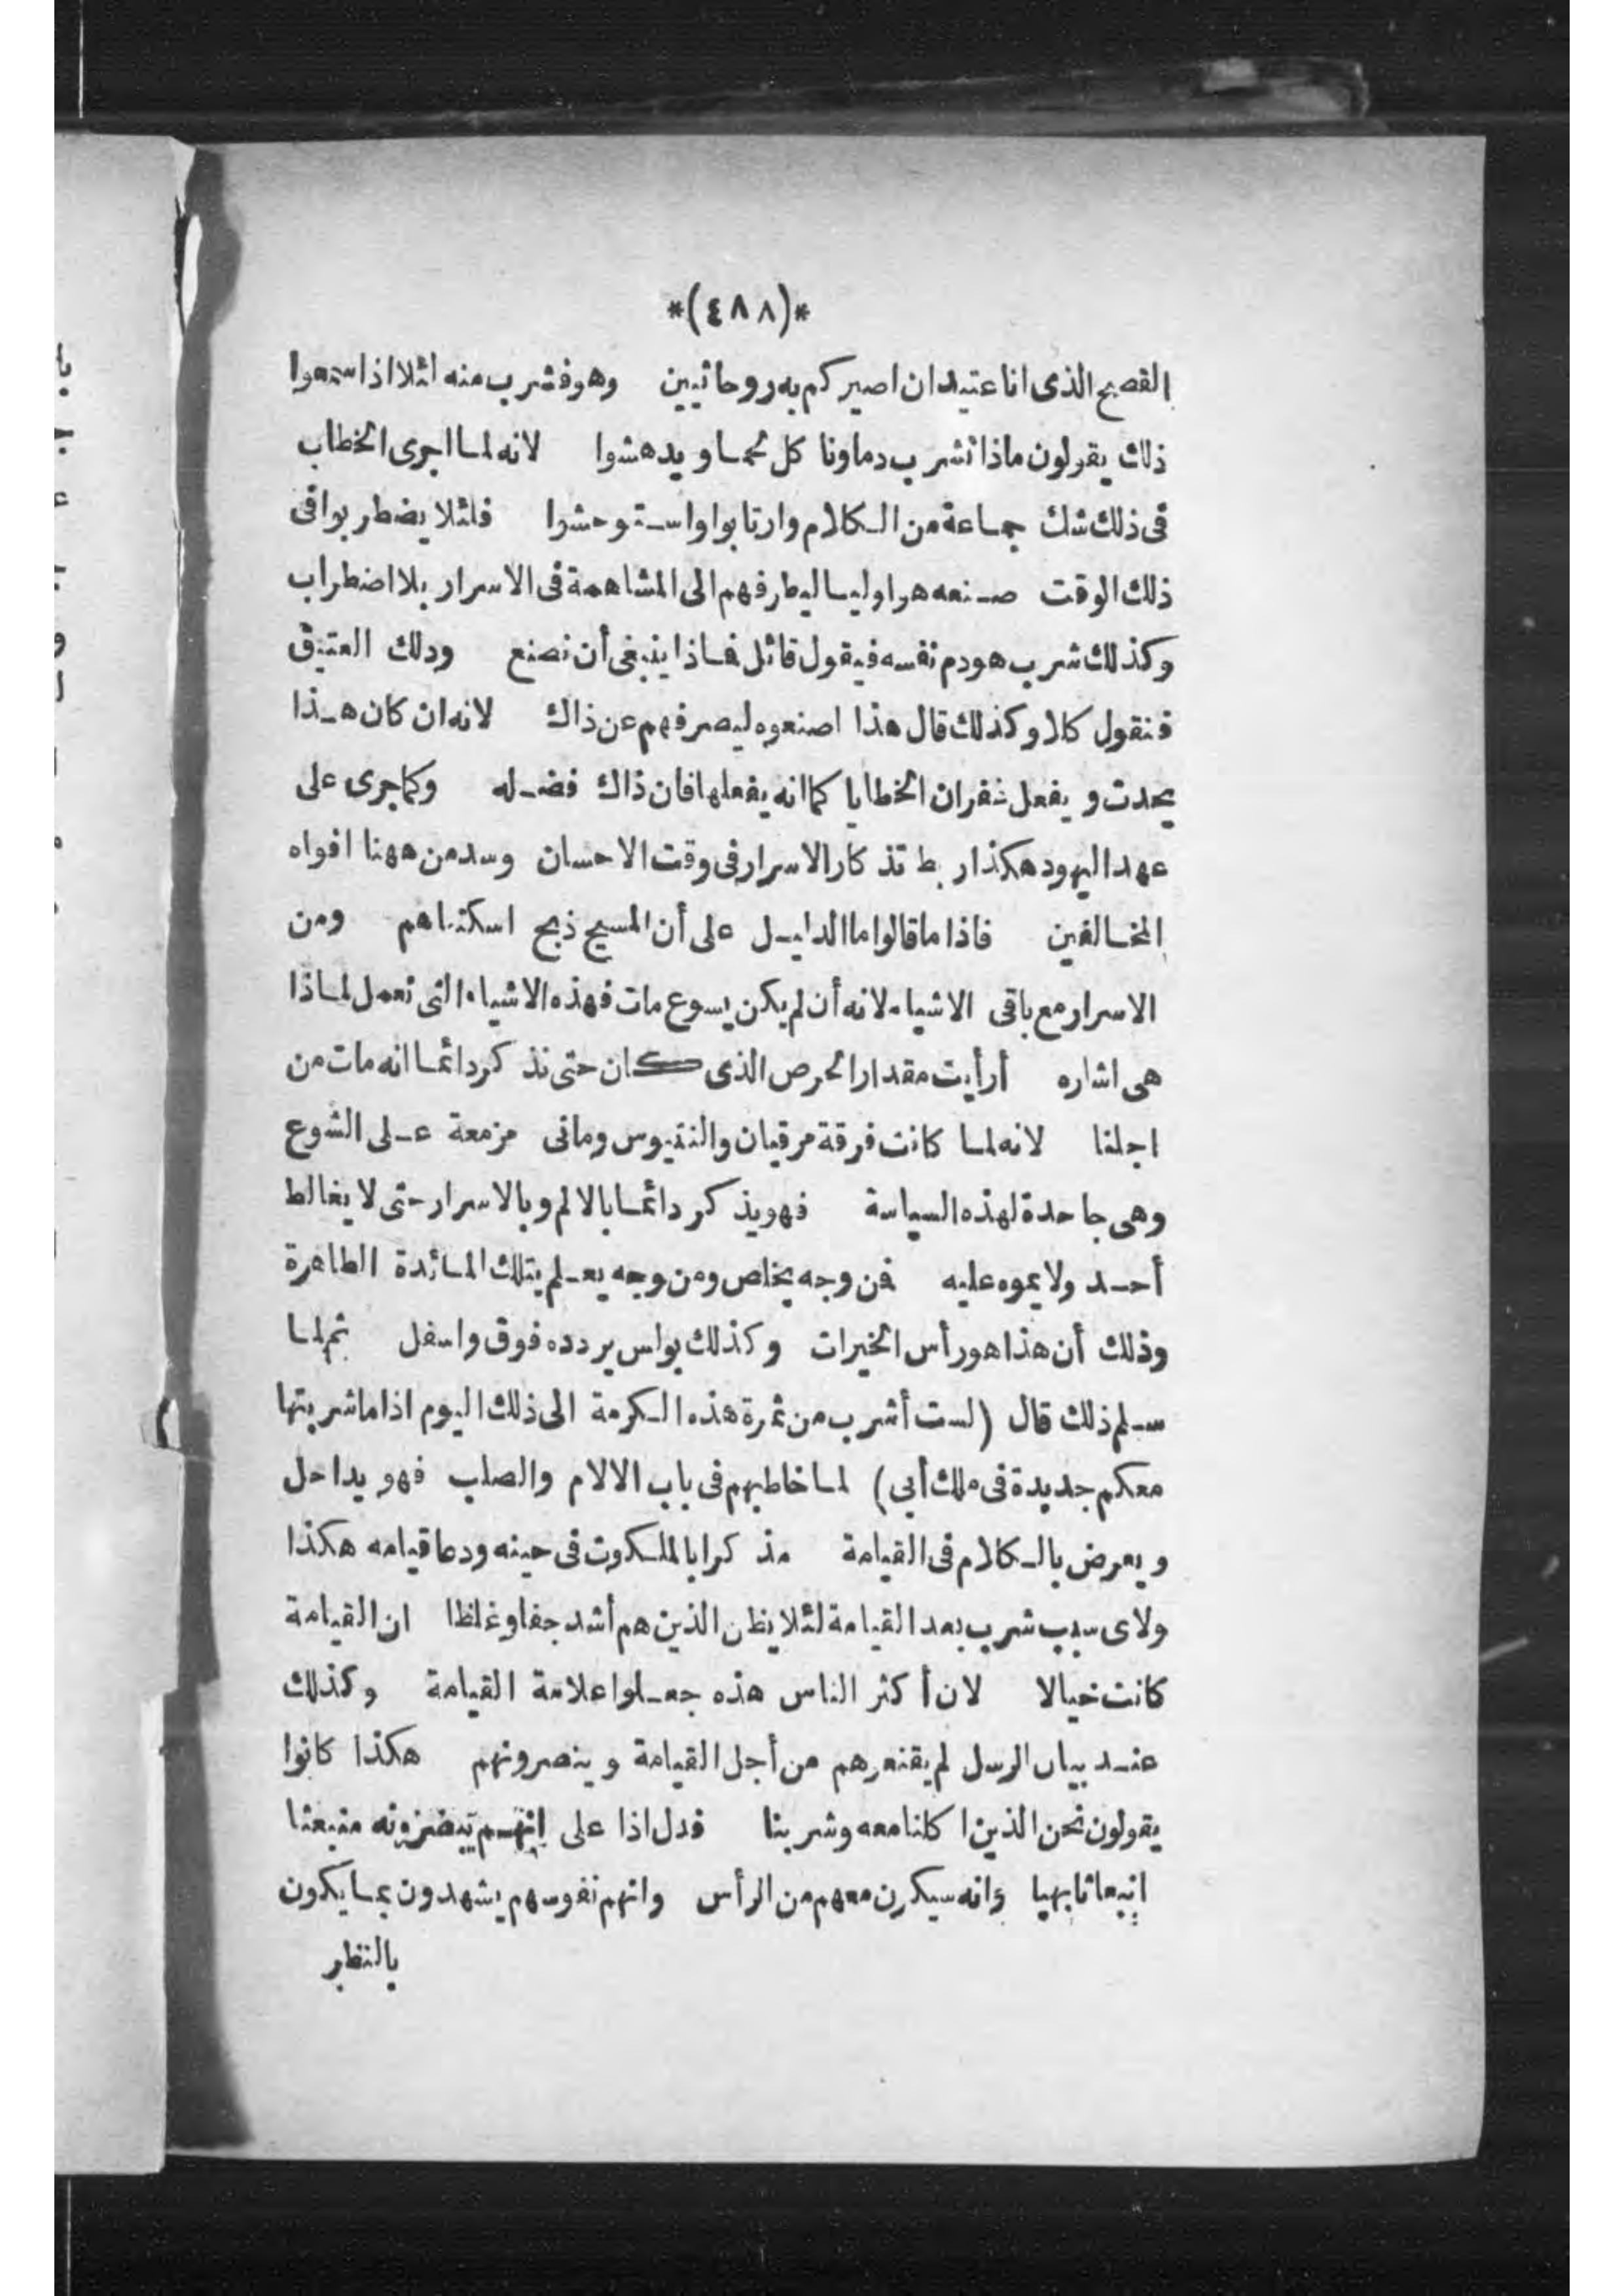 *(٤٨٨)*
الفصح الذى انا عتيد ان اصيركم به روحانيين وهو فشرب منه لئلا اذا سمعوا
ذلك يقولون ماذا نشرب دما ونا كل لحما ويدهشوا لانه لما اجرى الخطاب
فى ذلك شك جماعة من الكلام وارتابوا واستوحشوا فلئلا يضطربوا فى
ذلك الوقت صنعه هو اوليا ليطرفهم الى المشاهمة فى الاسرار بلا اضطراب
وكذلك شرب هو دم نفسه فيقول قائل فماذا ينبغى أن نصنع ودلك العتيق
فنقول كلا وكذلك قال هذا اصنعوه ليصرفهم عن ذاك لانه ان كان هذا
يحدث ويفعل غفران الخطايا كما انه يفعلها فان ذاك فضله وكما جرى على
عهد اليهود هكذا ربط تذكار الاسرار فى وقت الاحسان وسد من ههنا افواه
المخالفين فاذا ما قالوا ما الدليل على أن المسيح ذبح اسكتناهم ومن
الاسرار مع باقى الاشياء لانه أن لم يكن يسوع مات فهذه الاشياء التى تعمل لماذا
هى اشاره أرأيت مقدار الحرص الذى كان حتى نذكر دائما انه مات من
اجلنا لانه لما كانت فرقة مرقيان والنتيوس ومانى مزمعة على الشوع
وهى جاحدة لهذه السياسة فهو يذكر دائما بالالم وبالاسرار حتى لا يغالط
أحد ولا يموه عليه فمن وجه يخلص ومن وجه يعلم بتلك المائدة الطاهرة
وذلك أن هذا هو رأس الخيرات وكذلك بولس يردده فوق واسفل ثم لما
سلم ذلك قال (لست أشرب من ثمرة هذه الكرمة الى ذلك اليوم اذا ما شربتها
معكم جديدة فى ملك أبى) لما خاطبهم فى باب الالام والصلب فهو يداحل
ويعرض بالكلام فى القيامة مذكرا بالملكوت فى حينه ودعا قيامه هكذا
ولاى سبب شرب بعد القيامة لئلا يظن الذين هم أشد جفا وغلظا ان القيامة
كانت خيالا لان أكثر الناس هذه جعلوا علامة القيامة وكذلك
عند بيان الرسل لم يقنعوهم من أجل القيامة وينصرونهم هكذا كانوا
يقولون نحن الذين اكلنا معه وشربنا فدل اذا على انهم منبعثا
انبعاثا بهيا وانه سيكون معهم من الرأس وانهم نفوسهم يشهدون بما يكون
بالنظر